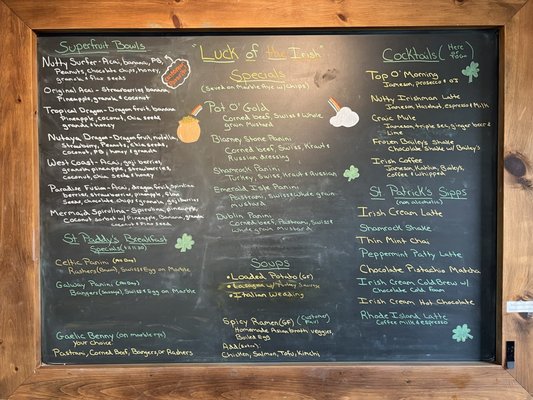 Superfruit Bowls
Nutty Surfer - Acai, banana, PB,
Peanuts, chocolate chips, honey,
granola, & flax seeds
Original Acai - Strawberries, banana
Pineapple, granola & coconut
Tropical Dragon - Dragon fruit, banana
Pineapple, coconut, chia seeds,
granola & honey
Nutaya Dragon - Dragon fruit, nutella,
Strawberry, Peanuts, chia seeds,
coconut, PB, honey & granola
West Coast - Acai, goji berries,
granola, pineapple, strawberries,
Coconut, chia seeds & honey
Paradise Fusion - Acai, dragon fruit, spirulina
berries, strawberries, pineapple, chia
Seeds, chocolate, chips & granola, goji berries
Mermaid, Spirulina - Spirulina, pineapple,
Coconut, w/ Pineapple, Banana, granola
Coconut & Flax seed
St Paddy's Breakfast
Specials
Celtic Panini (All Day)
Rashers (Ham), Swiss & Egg on Marble
Galway Panini (All Day)
Bangers (Sausage), Swiss & Egg on Marble
Gaelic Benny (on marble rye)
Your Choice:
Pastrami, Corned Beef, Bangers, or Rashers
"Luck of the Irish"
Specials
(Served on Marble Rye w/ Chips)
Pot O' Gold
Corned beef, Swiss & Whole
grain Mustard
Blarney Stone Panini
Corned beef, Swiss, Kraut &
Russian dressing
Shamrock Panini
Turkey, Swiss, Kraut
Emerald Isle Panini
Pastrami, Swiss & Whole grain
mustard
Dublin Panini
Corned beef, Pastrami, Swiss &
Whole grain Mustard
Soups
• Loaded Potato (GF)
• Lasagna w/ Turkey Sausage
• Italian Wedding
Spicy Ramen (GF) (Customer Fav!)
Homemade Asian broth, veggies,
Boiled Egg
Add (extra):
Chicken, Salmon, Tofu, Kimchi
Cocktails (Here or ToGo)
Top O' Morning
Jameson, prosecco & oj
Nutty Irishman Latte
Jameson, Hazelnut, Espresso & Milk
Craic Mule
Jameson, triple sec, ginger beer &
Lime
Frozen Baileys Shake
Chocolate Shake w/ Bailey's
Irish Coffee
Jameson, Kahlua, Bailey's,
Coffee & Whipped
St Patrick's Sipps
(non alcoholic)
Irish Cream Latte
Shamrock Shake
Thin Mint Chai
Peppermint Patty Latte
Chocolate Pistachio Matcha
Irish Cream Cold Brew w/
Chocolate Cold Foam
Irish Cream Hot Chocolate
Rhode Island Latte
Coffee milk & espresso